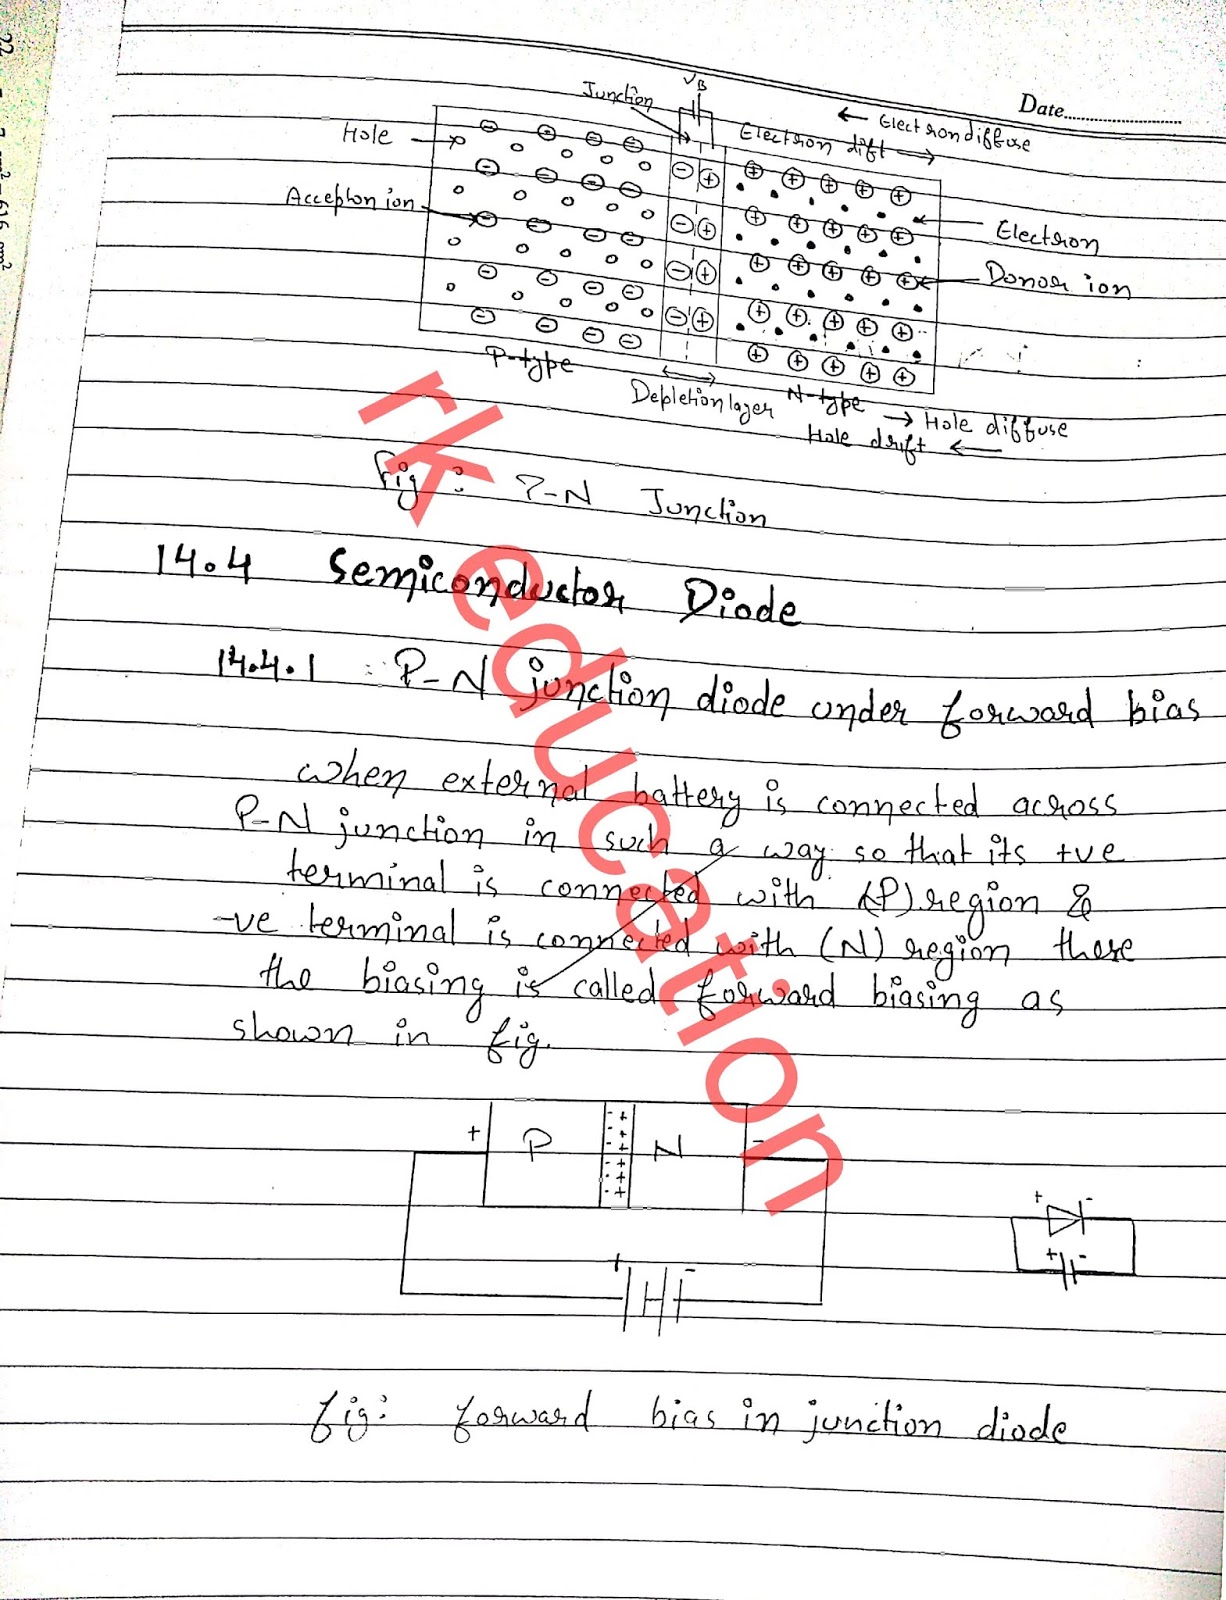 Date
V_B
Junction
← Electron diffuse
Electron dift →
Hole
Accepton ion
Electron
Donor ion
P-type
Depletion layer
N-type
→ Hole diffuse
Hole drift ←
Fig : P-N Junction
14.4 Semiconductor Diode
14.4.1 : P-N junction diode under forward bias
when external battery is connected across
P-N junction in such a way so that its +ve
terminal is connected with (P) region &
-ve terminal is connected with (N) region there
the biasing is called forward biasing as
shown in fig.
+ P N -
+ -
+ -
+ -
fig: forward bias in junction diode
rk education